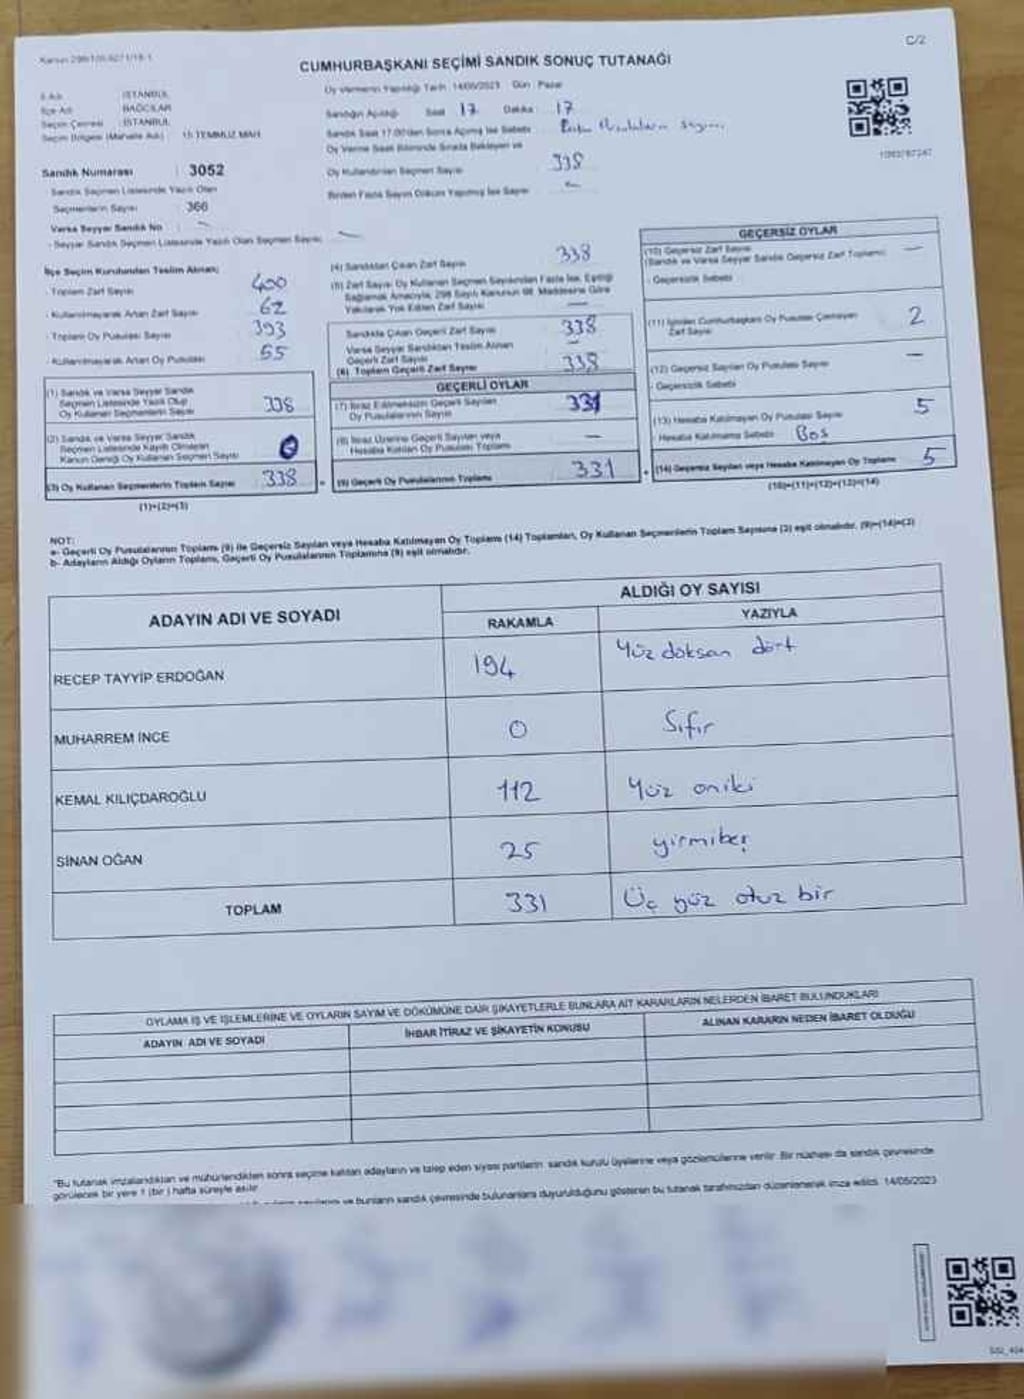 C/2
CUMHURBAŞKANI SEÇİMİ SANDIK SONUÇ TUTANAĞI
Oy Vermenin Yapıldığı Tarih 14/05/2023 Gün Pazar
İli Adı : İSTANBUL
İlçe Adı : BAĞCILAR
Seçim Çevresi : İSTANBUL
Seçim Bölgesi (Mahalle Adı) : 15 TEMMUZ MAH.
Sandık Numarası : 3052
Sandık Seçmen Listesinde Yazılı Olan
Seçmenlerin Sayısı : 366
Varsa Seyyar Sandık No : -
- Seyyar Sandık Seçmen Listesinde Yazılı Olan Seçmen Sayısı : -
Sandığın Açıldığı Saat 17 Dakika 17
Sandık Saat 17.00'den Sonra Açılmış İse Sebebi
Oy Verme Saati Bitiminde Sırada Bekleyen ve
Oy Kullandırılan Seçmen Sayısı 338
Birden Fazla Sayım Döküm Yapılmış İse Sayısı -
İlçe Seçim Kurulundan Teslim Alınan;
- Toplam Zarf Sayısı 400
- Kullanılmayarak Artan Zarf Sayısı 62
- Toplam Oy Pusulası Sayısı 393
- Kullanılmayarak Artan Oy Pusulası 55
(1) Sandık ve Varsa Seyyar Sandık
Seçmen Listesinde Yazılı Olup
Oy Kullanan Seçmenlerin Sayısı 338
(2) Sandık ve Varsa Seyyar Sandık
Seçmen Listesinde Kayıtlı Olmayan
Kanun Gereği Oy Kullanan Seçmen Sayısı 0
(3) Oy Kullanan Seçmenlerin Toplam Sayısı 338
(1)+(2)=(3)
(4) Sandıktan Çıkan Zarf Sayısı 338
(5) Zarf Sayısı Oy Kullanan Seçmen Sayısından Fazla İse, Eşitliği
Sağlamak Amacıyla, 298 Sayılı Kanunun 98. Maddesine Göre
Yakılarak Yok Edilen Zarf Sayısı -
Sandıkta Çıkan Geçerli Zarf Sayısı 338
Varsa Seyyar Sandıktan Teslim Alınan
Geçerli Zarf Sayısı -
(6) Toplam Geçerli Zarf Sayısı 338
GEÇERLİ OYLAR
(7) İtiraz Edilmeksizin Geçerli Sayılan
Oy Pusulalarının Sayısı 331
(8) İtiraz Üzerine Geçerli Sayılan veya
Hesaba Katılan Oy Pusulası Toplamı -
(9) Geçerli Oy Pusulalarının Toplamı 331
GEÇERSİZ OYLAR
(10) Geçersiz Zarf Sayısı
(Sandık ve Varsa Seyyar Sandık Geçersiz Zarf Toplamı) -
- Geçersizlik Sebebi
(11) İçinden Cumhurbaşkanı Oy Pusulası Çıkmayan
Zarf Sayısı 2
(12) Geçersiz Sayılan Oy Pusulası Sayısı -
- Geçersizlik Sebebi
(13) Hesaba Katılmayan Oy Pusulası Sayısı 5
- Hesaba Katılmama Sebebi Boş
(14) Geçersiz Sayılan veya Hesaba Katılmayan Oy Toplamı 5
(10)+(11)+(12)+(13)=(14)
NOT:
a- Geçerli Oy Pusulalarının Toplamı (9) ile Geçersiz Sayılan veya Hesaba Katılmayan Oy Toplamı (14) Toplamları, Oy Kullanan Seçmenlerin Toplam Sayısına (3) eşit olmalıdır. (9)+(14)=(3)
b- Adayların Aldığı Oyların Toplamı, Geçerli Oy Pusulalarının Toplamına (9) eşit olmalıdır.
ADAYIN ADI VE SOYADI
ALDIĞI OY SAYISI
RAKAMLA YAZIYLA
RECEP TAYYİP ERDOĞAN 194 Yüz doksan dört
MUHARREM İNCE 0 Sıfır
KEMAL KILIÇDAROĞLU 112 Yüz oniki
SİNAN OĞAN 25 yirmibeş
TOPLAM 331 Üç yüz otuz bir
OYLAMA İŞ VE İŞLEMLERİNE VE OYLARIN SAYIM VE DÖKÜMÜNE DAİR ŞİKAYETLERLE BUNLARA AİT KARARLARIN NELERDEN İBARET BULUNDUKLARI
ADAYIN ADI VE SOYADI İHBAR İTİRAZ VE ŞİKAYETİN KONUSU ALINAN KARARIN NEDEN İBARET OLDUĞU
"Bu tutanak imzalandıktan ve mühürlendikten sonra seçime katılan adayların ve talep eden siyasi partilerin sandık kurulu üyelerine veya gözlemcilerine verilir. Bir nüshası da sandık çevresinde
görülecek bir yere 1 (bir) hafta süreyle asılır.
ve bunların sandık çevresinde bulunanlara duyurulduğunu gösteren bu tutanak tarafımızdan düzenlenerek imza edildi. 14/05/2023